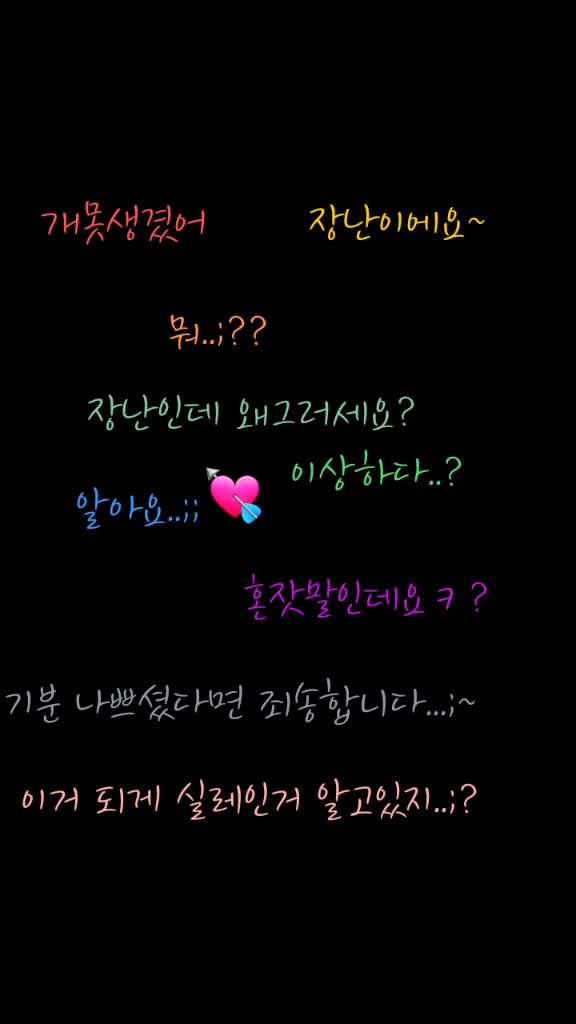 개못생겼어 장난이에요~
뭐..;??
장난인데 왜그러세요?
이상하다..?
알아요..;;
혼잣말인데요 ㅋ ?
기분 나쁘셨다면 죄송합니다...;~
이거 되게 실레인거 알고있지..;?